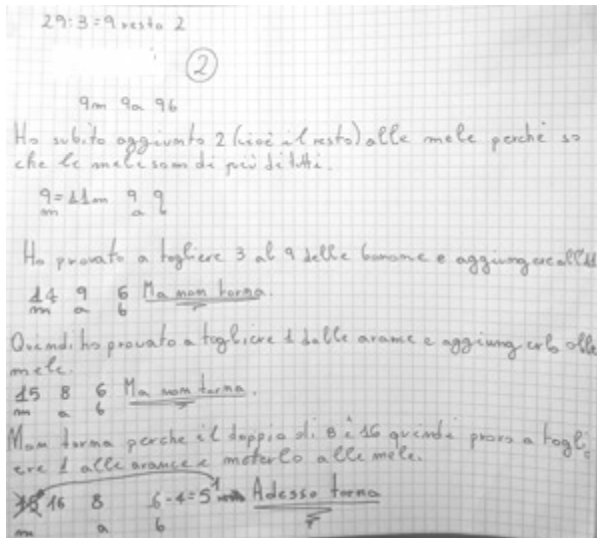 29:3=9 resto 2
2
9m 9a 9b
Ho subito aggiunto 2 (cioè il resto) alle mele perché so
che le mele son di più di tutti.
9=11m 9 9
m a
Ho provato a togliere 3 al 9 delle banane e aggiungere all'11
14 9 6 Ma non torna.
m a b
Quindi ho provato a togliere 1 dalle arance e aggiungerlo alle
mele.
15 8 6 Ma non torna.
m a b
Non torna perché il doppio di 8 è 16 quindi provo a togli
ere 1 alle arance e meterlo alle mele.
15 16 8 6-1=5 Adesso torna
m a b